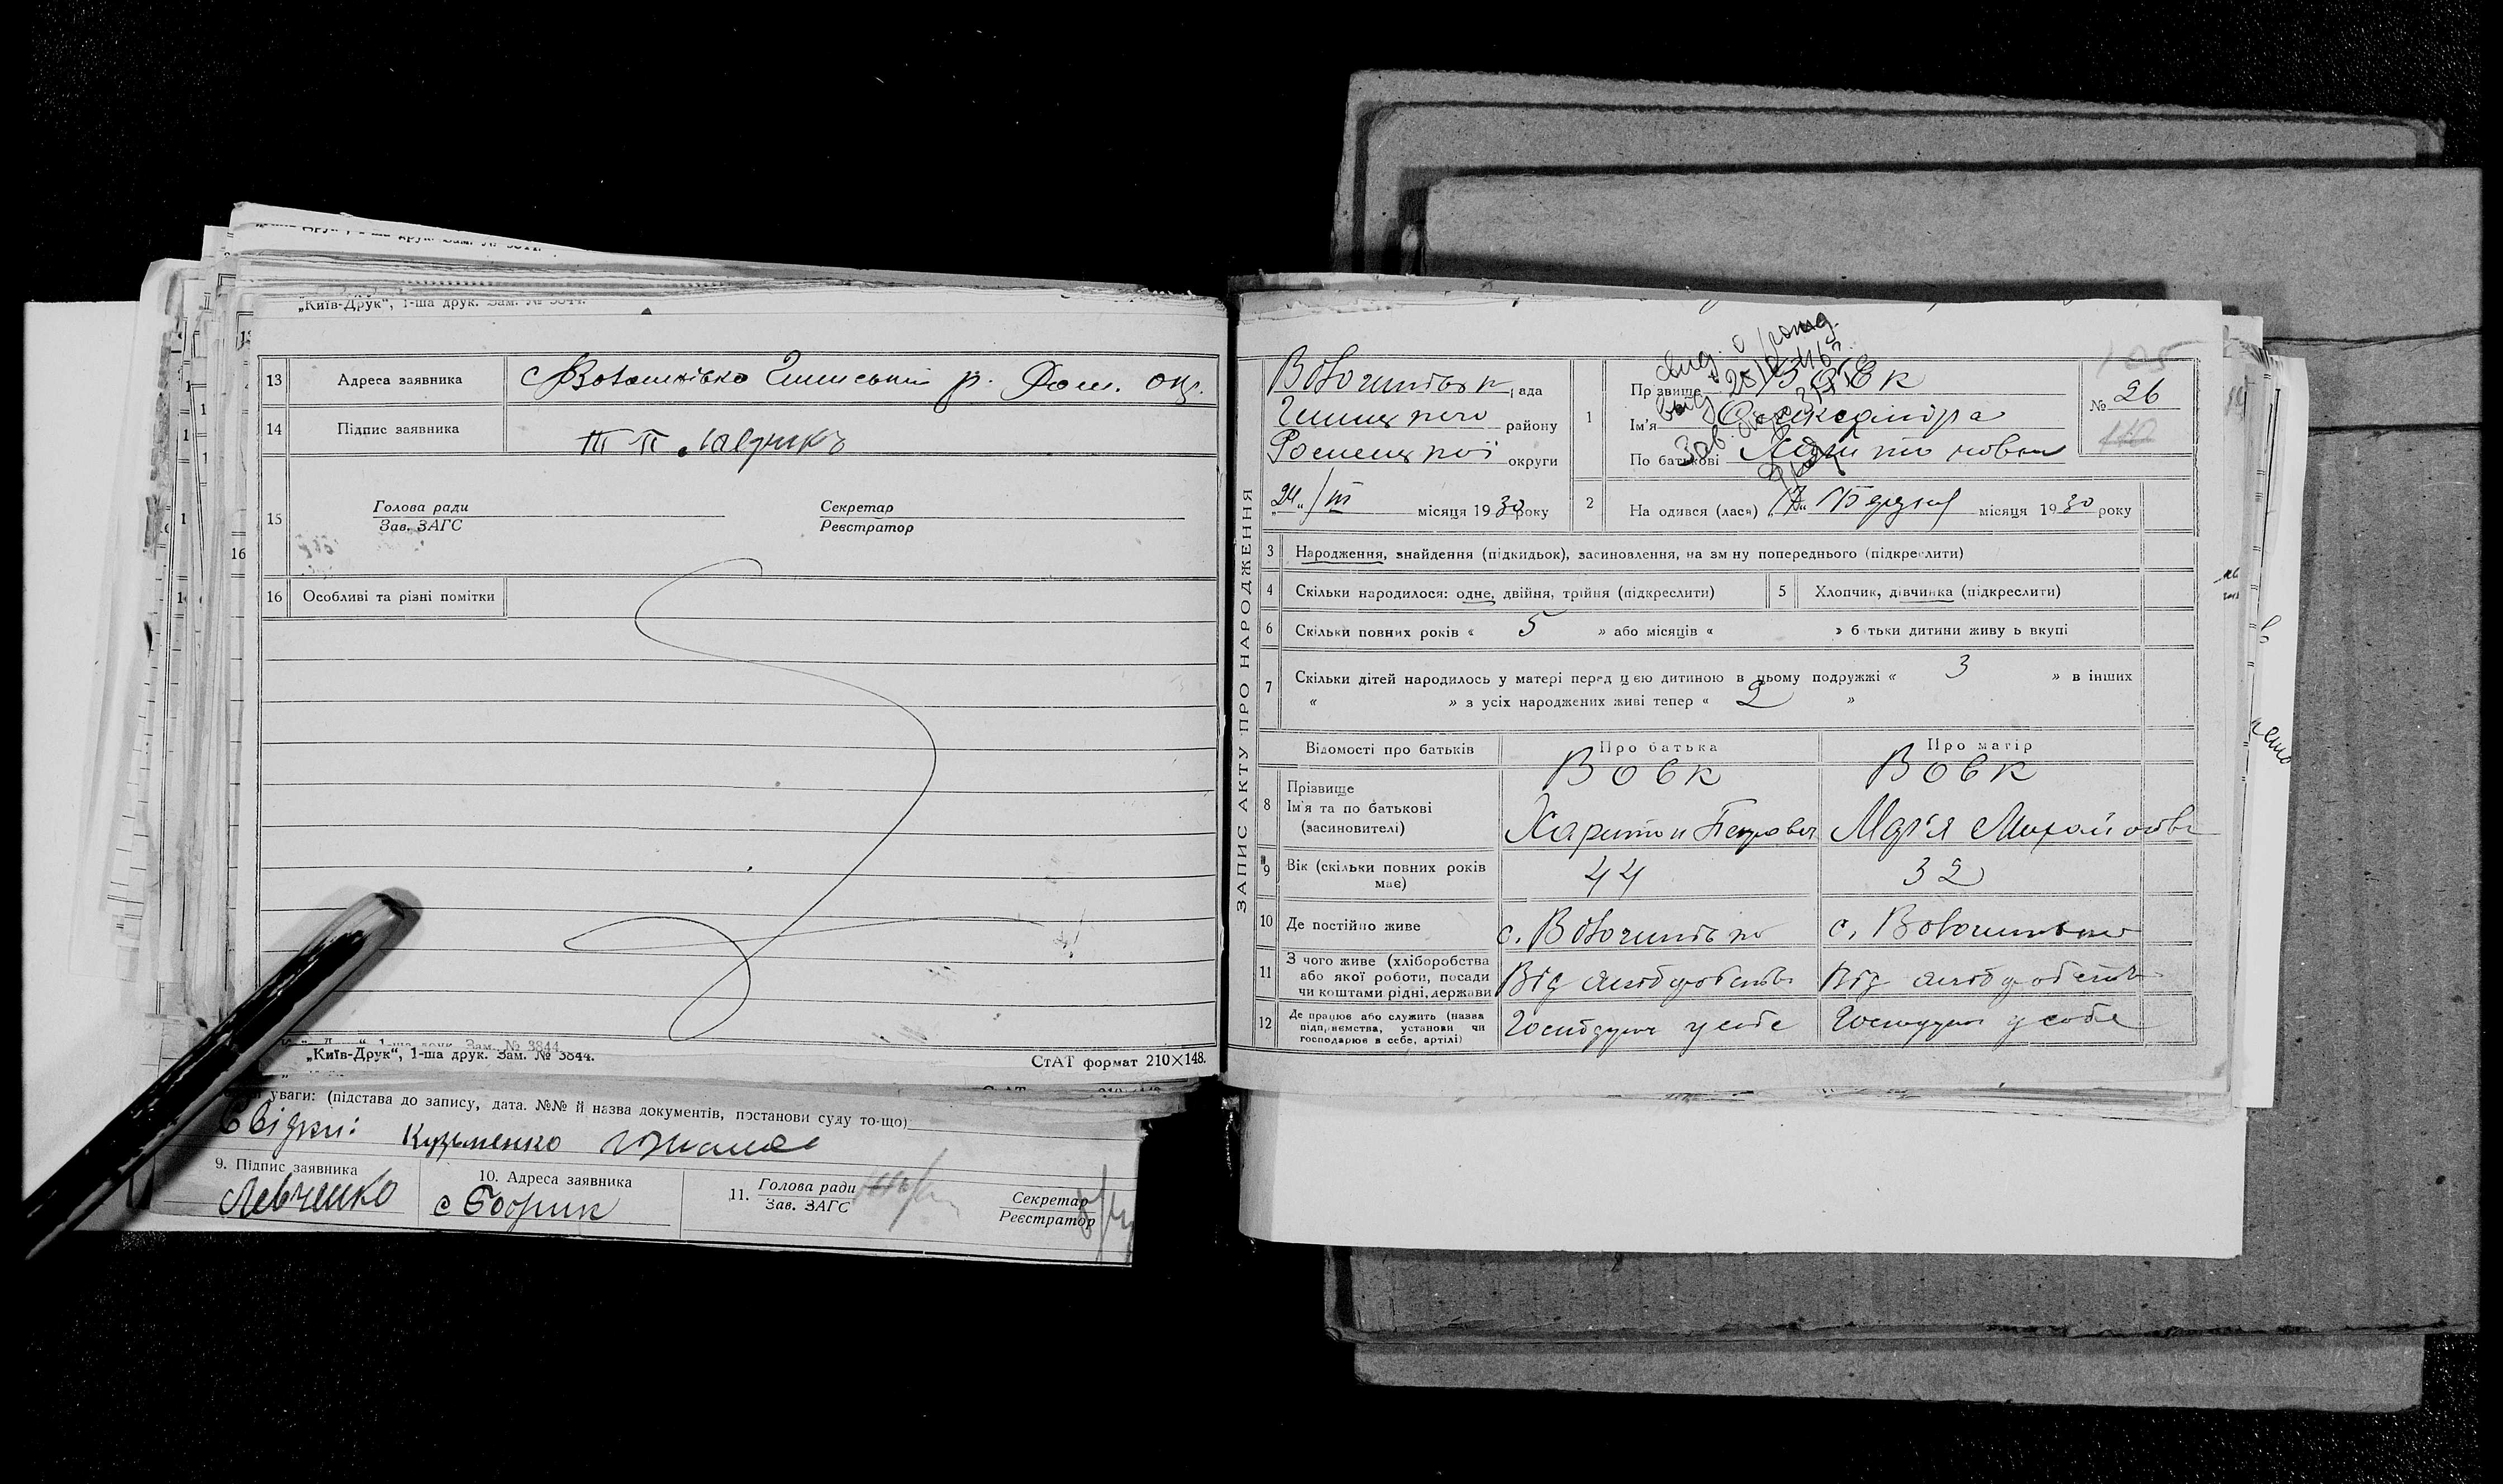 „Київ-Друк“, 1-ша друк. Зам. № 3844.
13 Адреса заявника с Волошнівка Глинський р. Ром. окр.
14 Підпис заявника
15 Голова ради Секретар
Зав. ЗАГС Реєстратор
16 Особливі та різні помітки
„Київ-Друк“, 1-ша друк. Зам. № 3844.
СтАТ формат 210×148.
уваги: (підстава до запису, дата. №№ й назва документів, постанови суду то-що)
Свідки: Кузьменко
9. Підпис заявника 10. Адреса заявника 11. Голова ради Секретар
Зав. ЗАГС Реєстратор
Левченко с Бобрик
ЗАПИС АКТУ ПРО НАРОДЖЕННЯ
рада
району
округи
24/III місяця 1930 року
1 Прізвище Вовк
Ім'я Олександра
По батькові Харитоновна
№ 26
105
110
2 Народився (лася) місяця 1930 року
3 Народження, знайдення (підкидьок), засиновлення, на зміну попереднього (підкреслити)
4 Скільки народилося: одне, двійня, трійня (підкреслити) 5 Хлопчик, дівчинка (підкреслити)
6 Скільки повних років « 5 » або місяців « » батьки дитини живуть вкупі
7 Скільки дітей народилось у матері перед цією дитиною в цьому подружжі « 3 » в інших
« » з усіх народжених живі тепер « 2 »
Відомості про батьків Про батька Про матір
8 Прізвище Вовк Вовк
Ім'я та по батькові
(засиновителі) Харитон Петрович Мар'я Михайловна
9 Вік (скільки повних років має) 44 32
10 Де постійно живе с. с.
11 З чого живе (хліборобства
або якої роботи, посади
чи коштами рідні, держави Від хліборобства Від хліборобства
12 Де працює або служить (назва
підприємства, установи чи
господарює в себе, артілі) Господарює у себе Господарює у себе